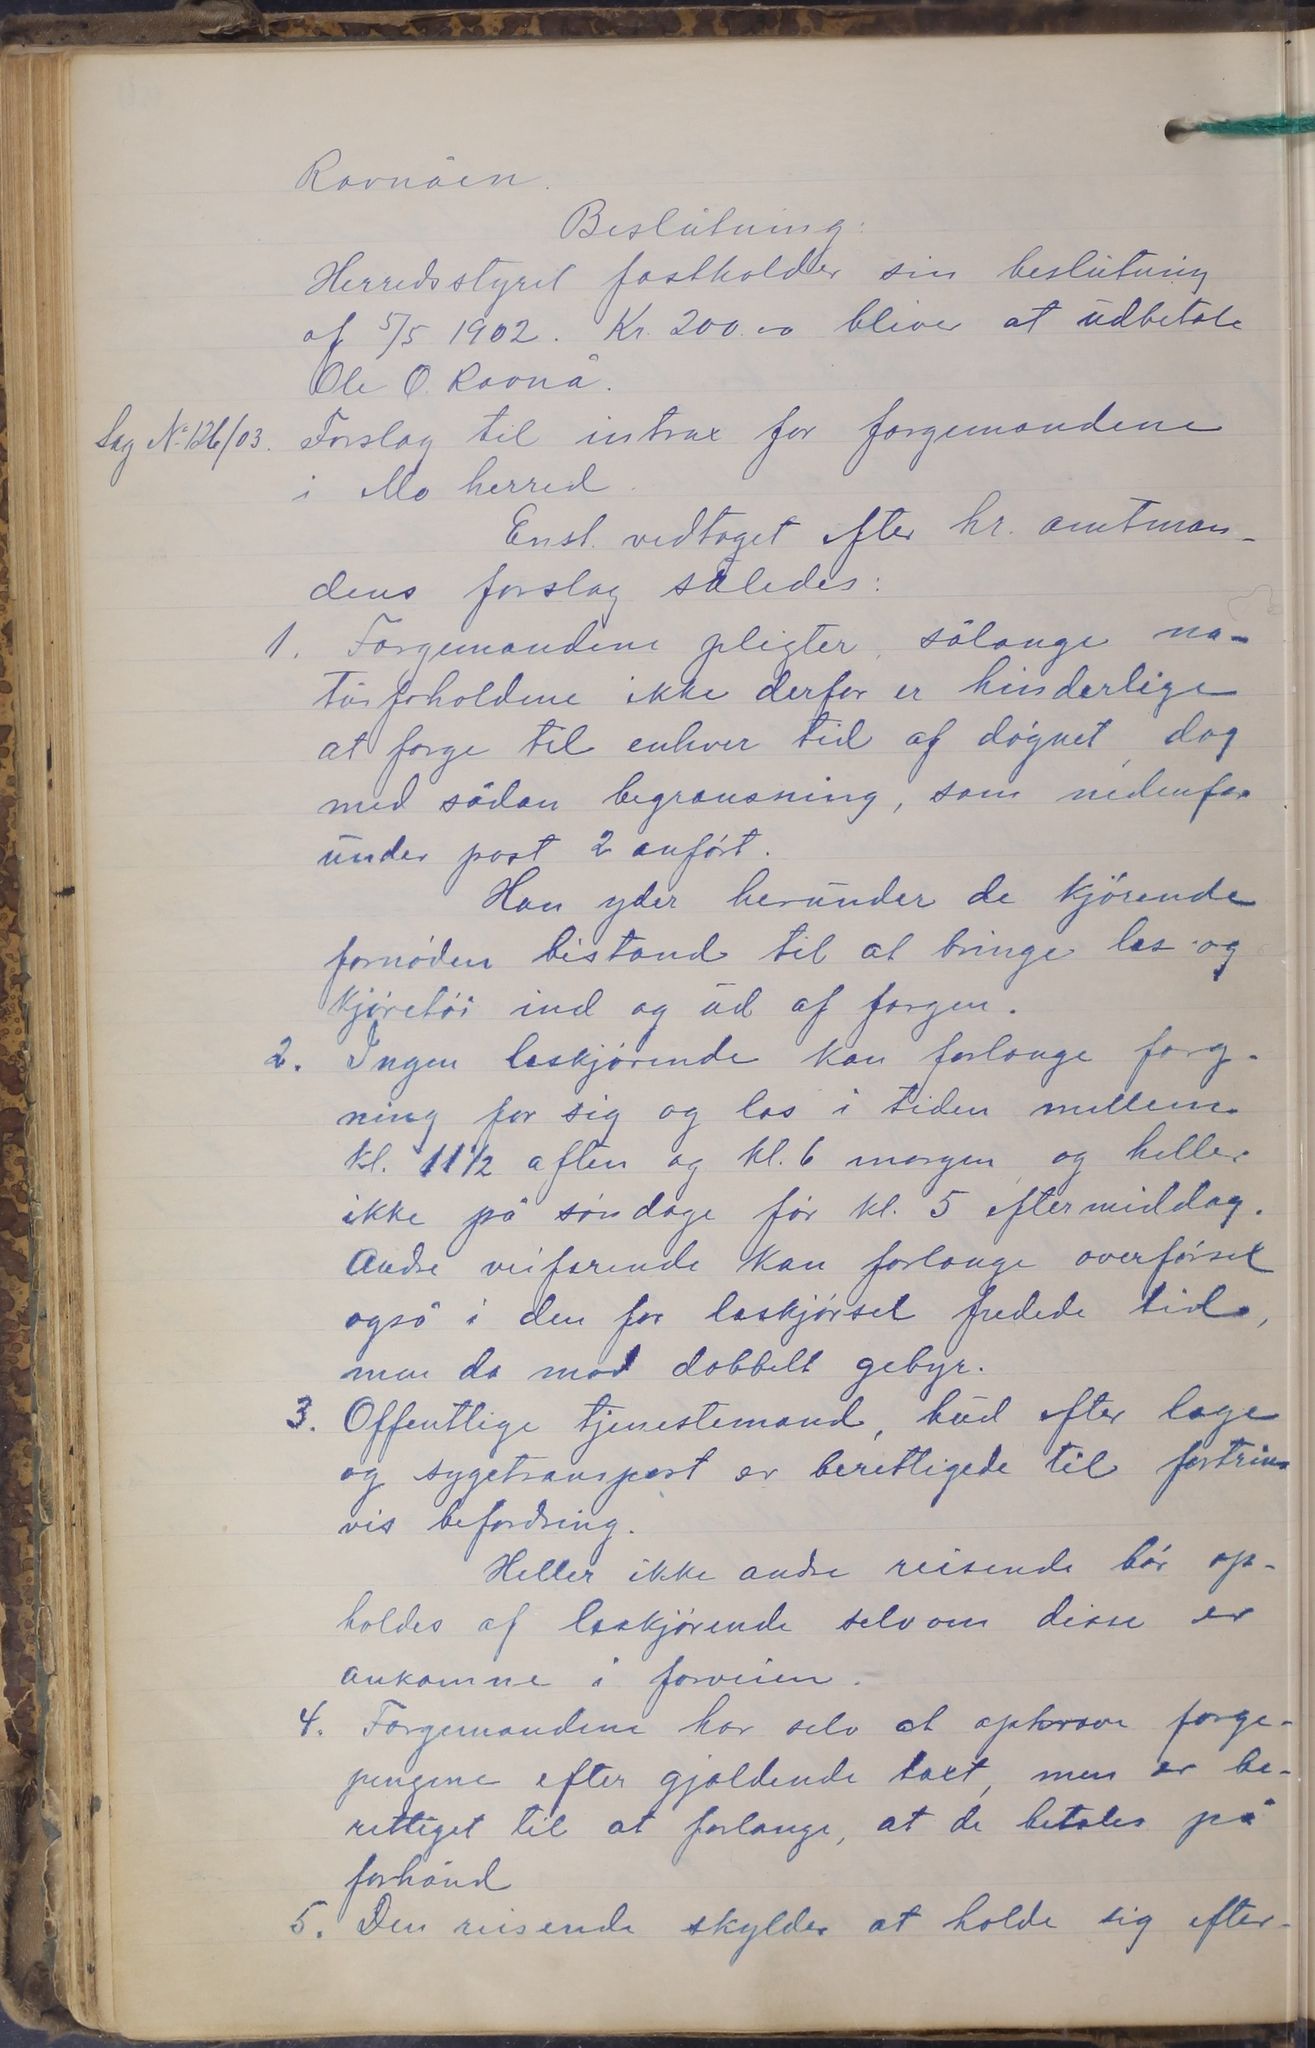 Ravnåen.
Beslutning:
Herredsstyret fastholder sin beslutning
af 5/5 1902. Kr. 200.00 bliver at udbetale
Ole O. Ravnå.
Sag No. 126/03. Forslag til instrux for færgemændene
i Mo herred.
Enst. vedtaget efter hr. amtman-
dens forslag således:
1. Færgemændene pligter, sålange na-
turforholdene ikke derfor er hinderlige
at færge til enhver tid af døgnet, dog
med sådan begrænsning, som nedenfor
under post 2 anført.
Han yder herunder de kjørende
fornøden bistand til at bringe læs og
kjøretøi ind og ud af færgen.
2. Ingen læskjørende kan forlange færg-
ning for sig og læs i tiden mellem
kl. 11 1/2 aften og kl. 6 morgen og heller
ikke på søndage før kl. 5 eftermiddag.
Andre veifarende kan forlange overførsel
også i den for læskjørsel fredede tid,
men da mod dobbelt gebyr.
3. Offentlige tjenestemænd, bud efter læge
og sygetransport er berettigede til fortrins
vis befordring.
Heller ikke andre reisende bør op-
holdes af læskjørende selv om disse er
ankomne i forveien.
4. Færgemændene har selv at opkræve færge-
pengene efter gjældende taxt, men er be-
rettiget til at forlange, at de betales på
forhånd
5. Den reisende skylder at holde sig efter-